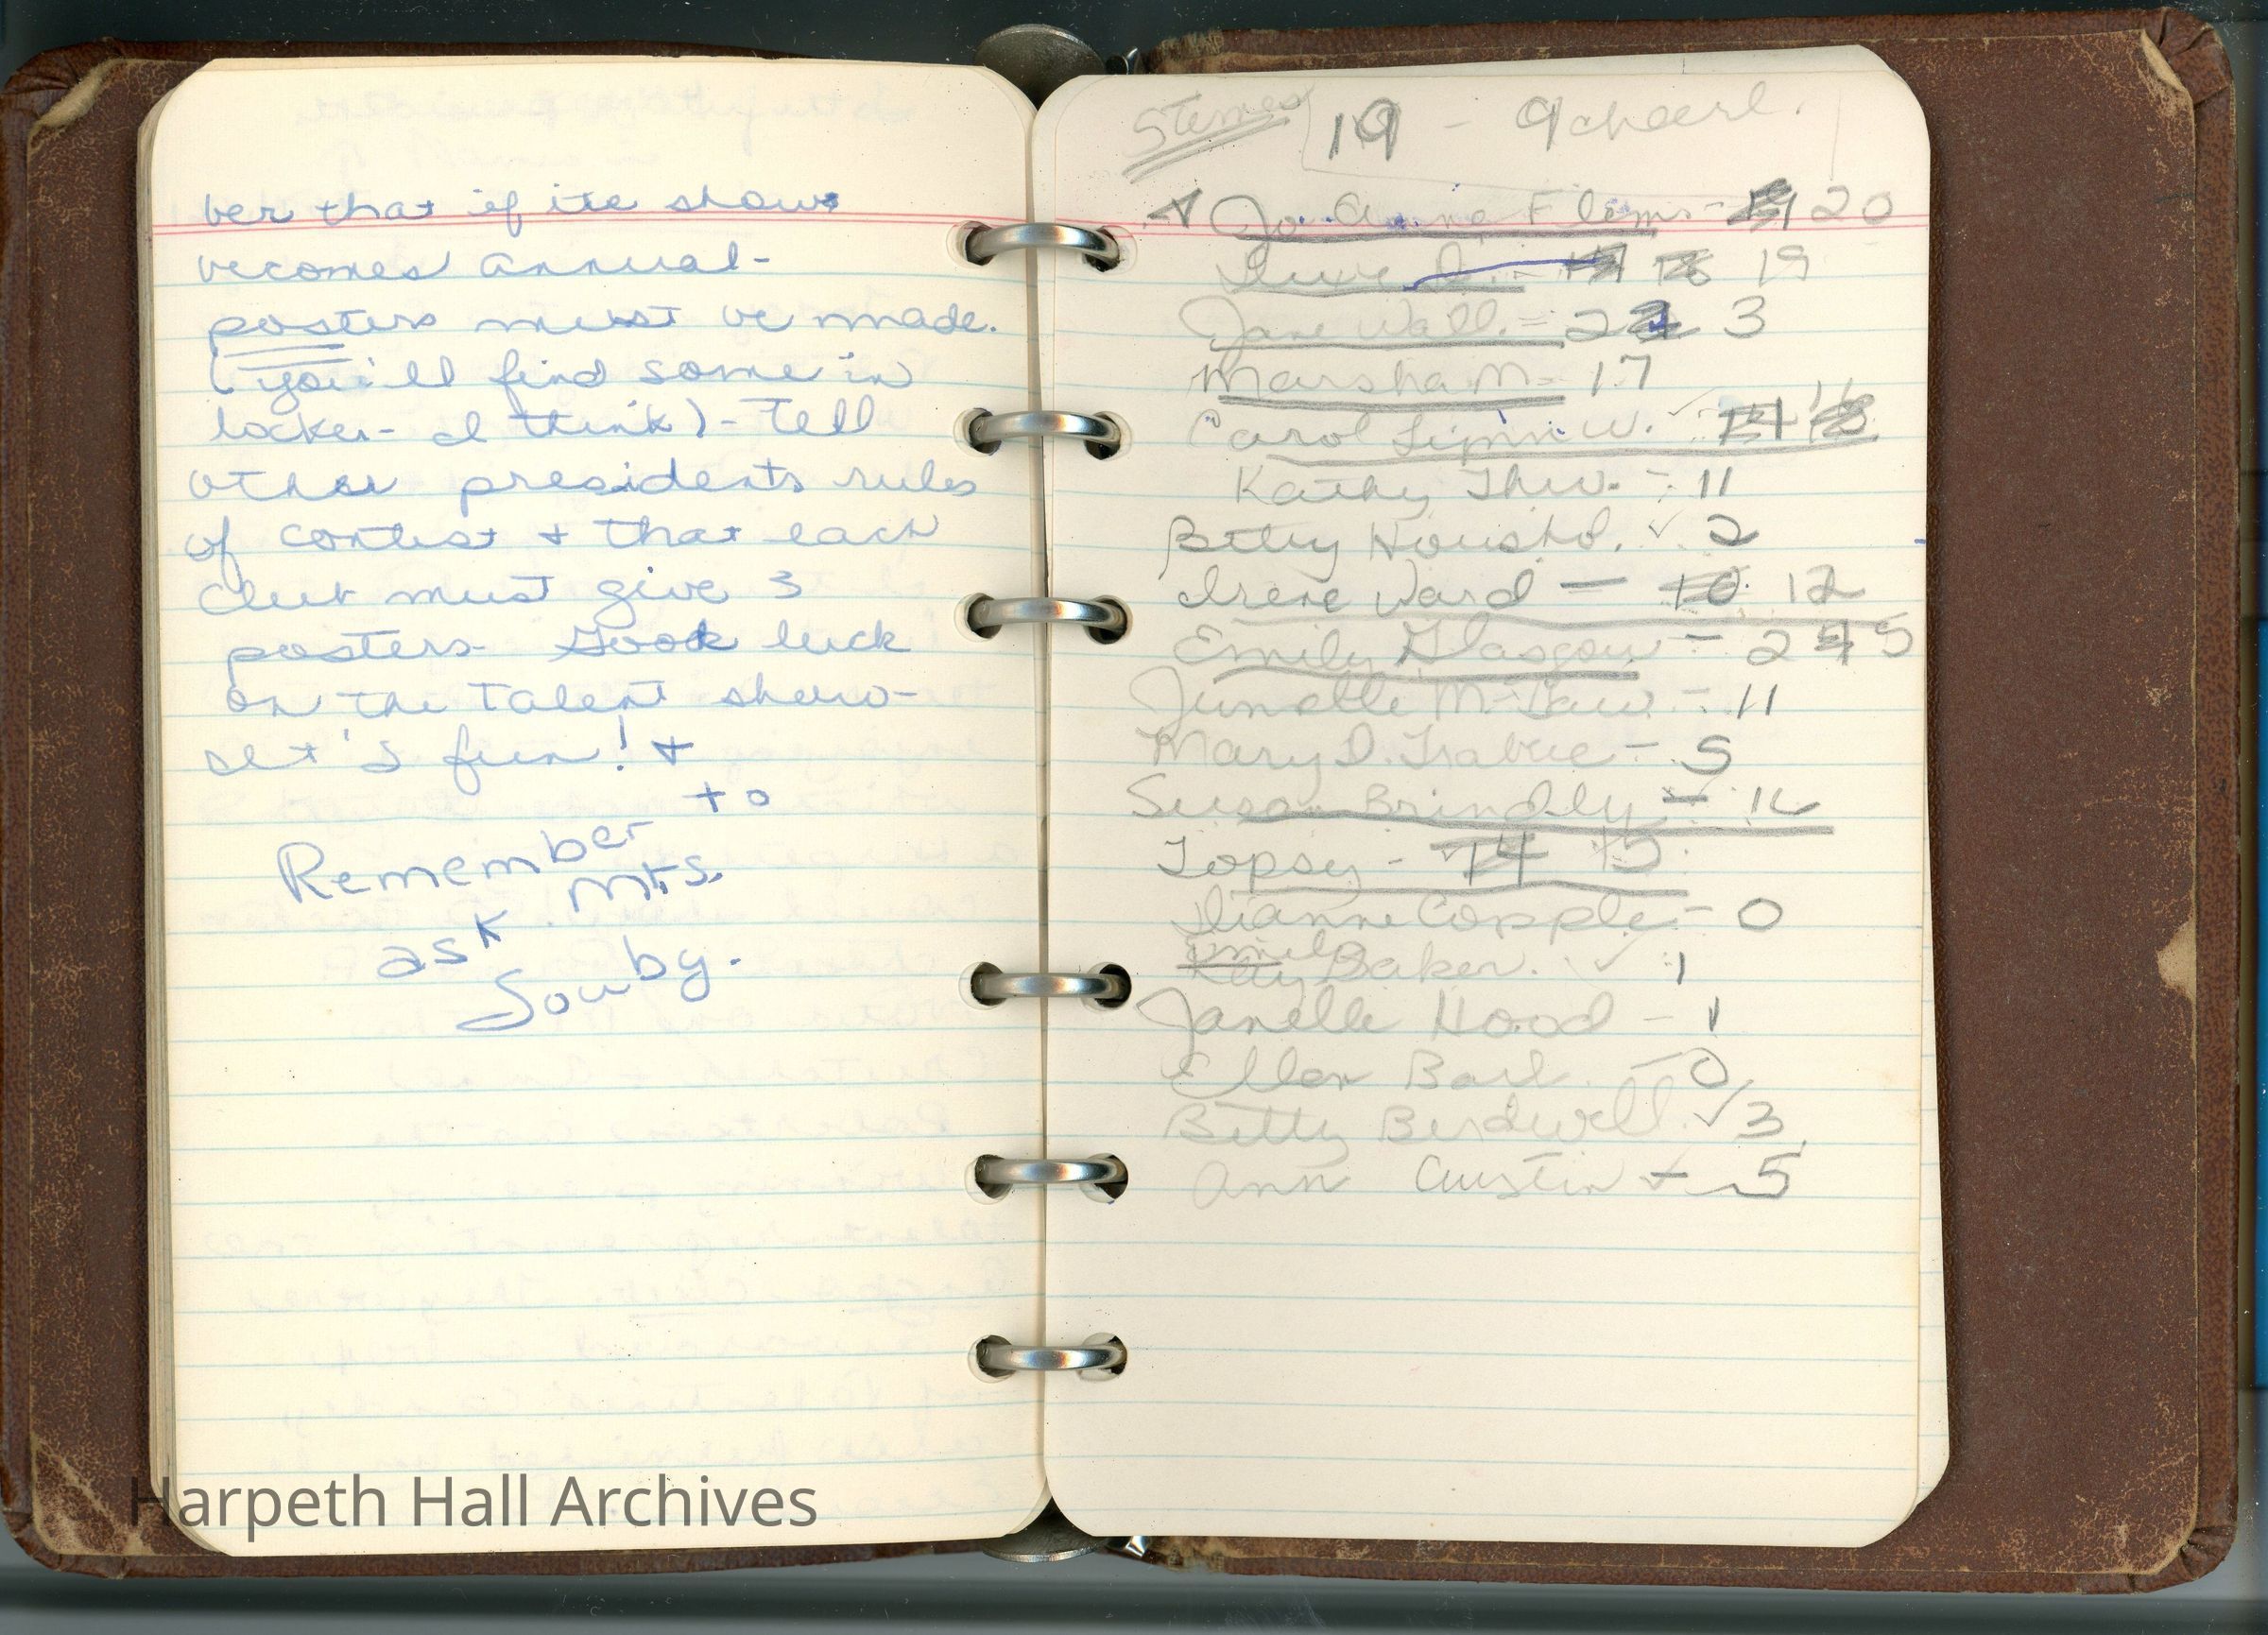 ber that if ite shows
becomes annual-
posters must be made.
(you'll find some in
locker- I think)- Tell
other presidents rules
of contest + that each
club must give 3
posters- Good luck
on the Talent show-
it's fun! +
to
Remember
Mrs.
ask
Souby.
19 - 9
Jo Anna Flem - 20
19
Jane Wall. - 22 3
Marsha M - 17
Carol Lynn W. 16
Kathy - 11
Betty 2
Irene Ward - 10 12
Emily Glasgow - 2 4 5
11
Mary D. Trabue - 5
Susan Brindly - 16
Topsy - 14 15
Dianne Copple - 0
Baker. 1
Janelle Hood - 1
Ellen 0
Betty Birdwell 3
Ann Austin 5
Harpeth Hall Archives